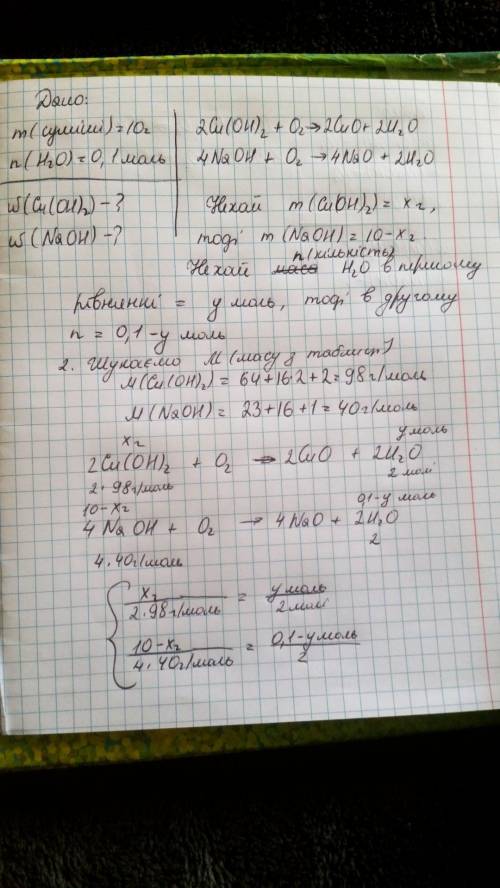 Дано:
m(суміші)=10г
n(H₂O)=0,1моль
W(Cu(OH)₂)-?
W(NaOH)-?
2Cu(OH)₂ + O₂→2CuO+ 2H₂O
4NaOH + O₂ →4NaO + 2H₂O
Нехай m(Cu(OH)₂) = xг,
тоді m(NaOH)=10-xг.
n(кількість)
Нехай маса H₂O в першому
рівнянні = y моль, тоді в другому
n = 0,1-y моль
2. Шукаємо M(масу з таблиці)
M(Cu(OH)₂) = 64+16·2+2=98г/моль
M(NaOH) = 23+16+1=40г/моль
xг yмоль
2Cu(OH)₂ + O₂ → 2CuO + 2H₂O
2·98г/моль 2 молі
10-xг 0,1-y моль
4NaOH + O₂ → 4NaO + 2H₂O
4·40г/моль 2
xг / 2·98г/моль = yмоль / 2молі
10-xг / 4·40г/моль = 0,1-yмоль / 2